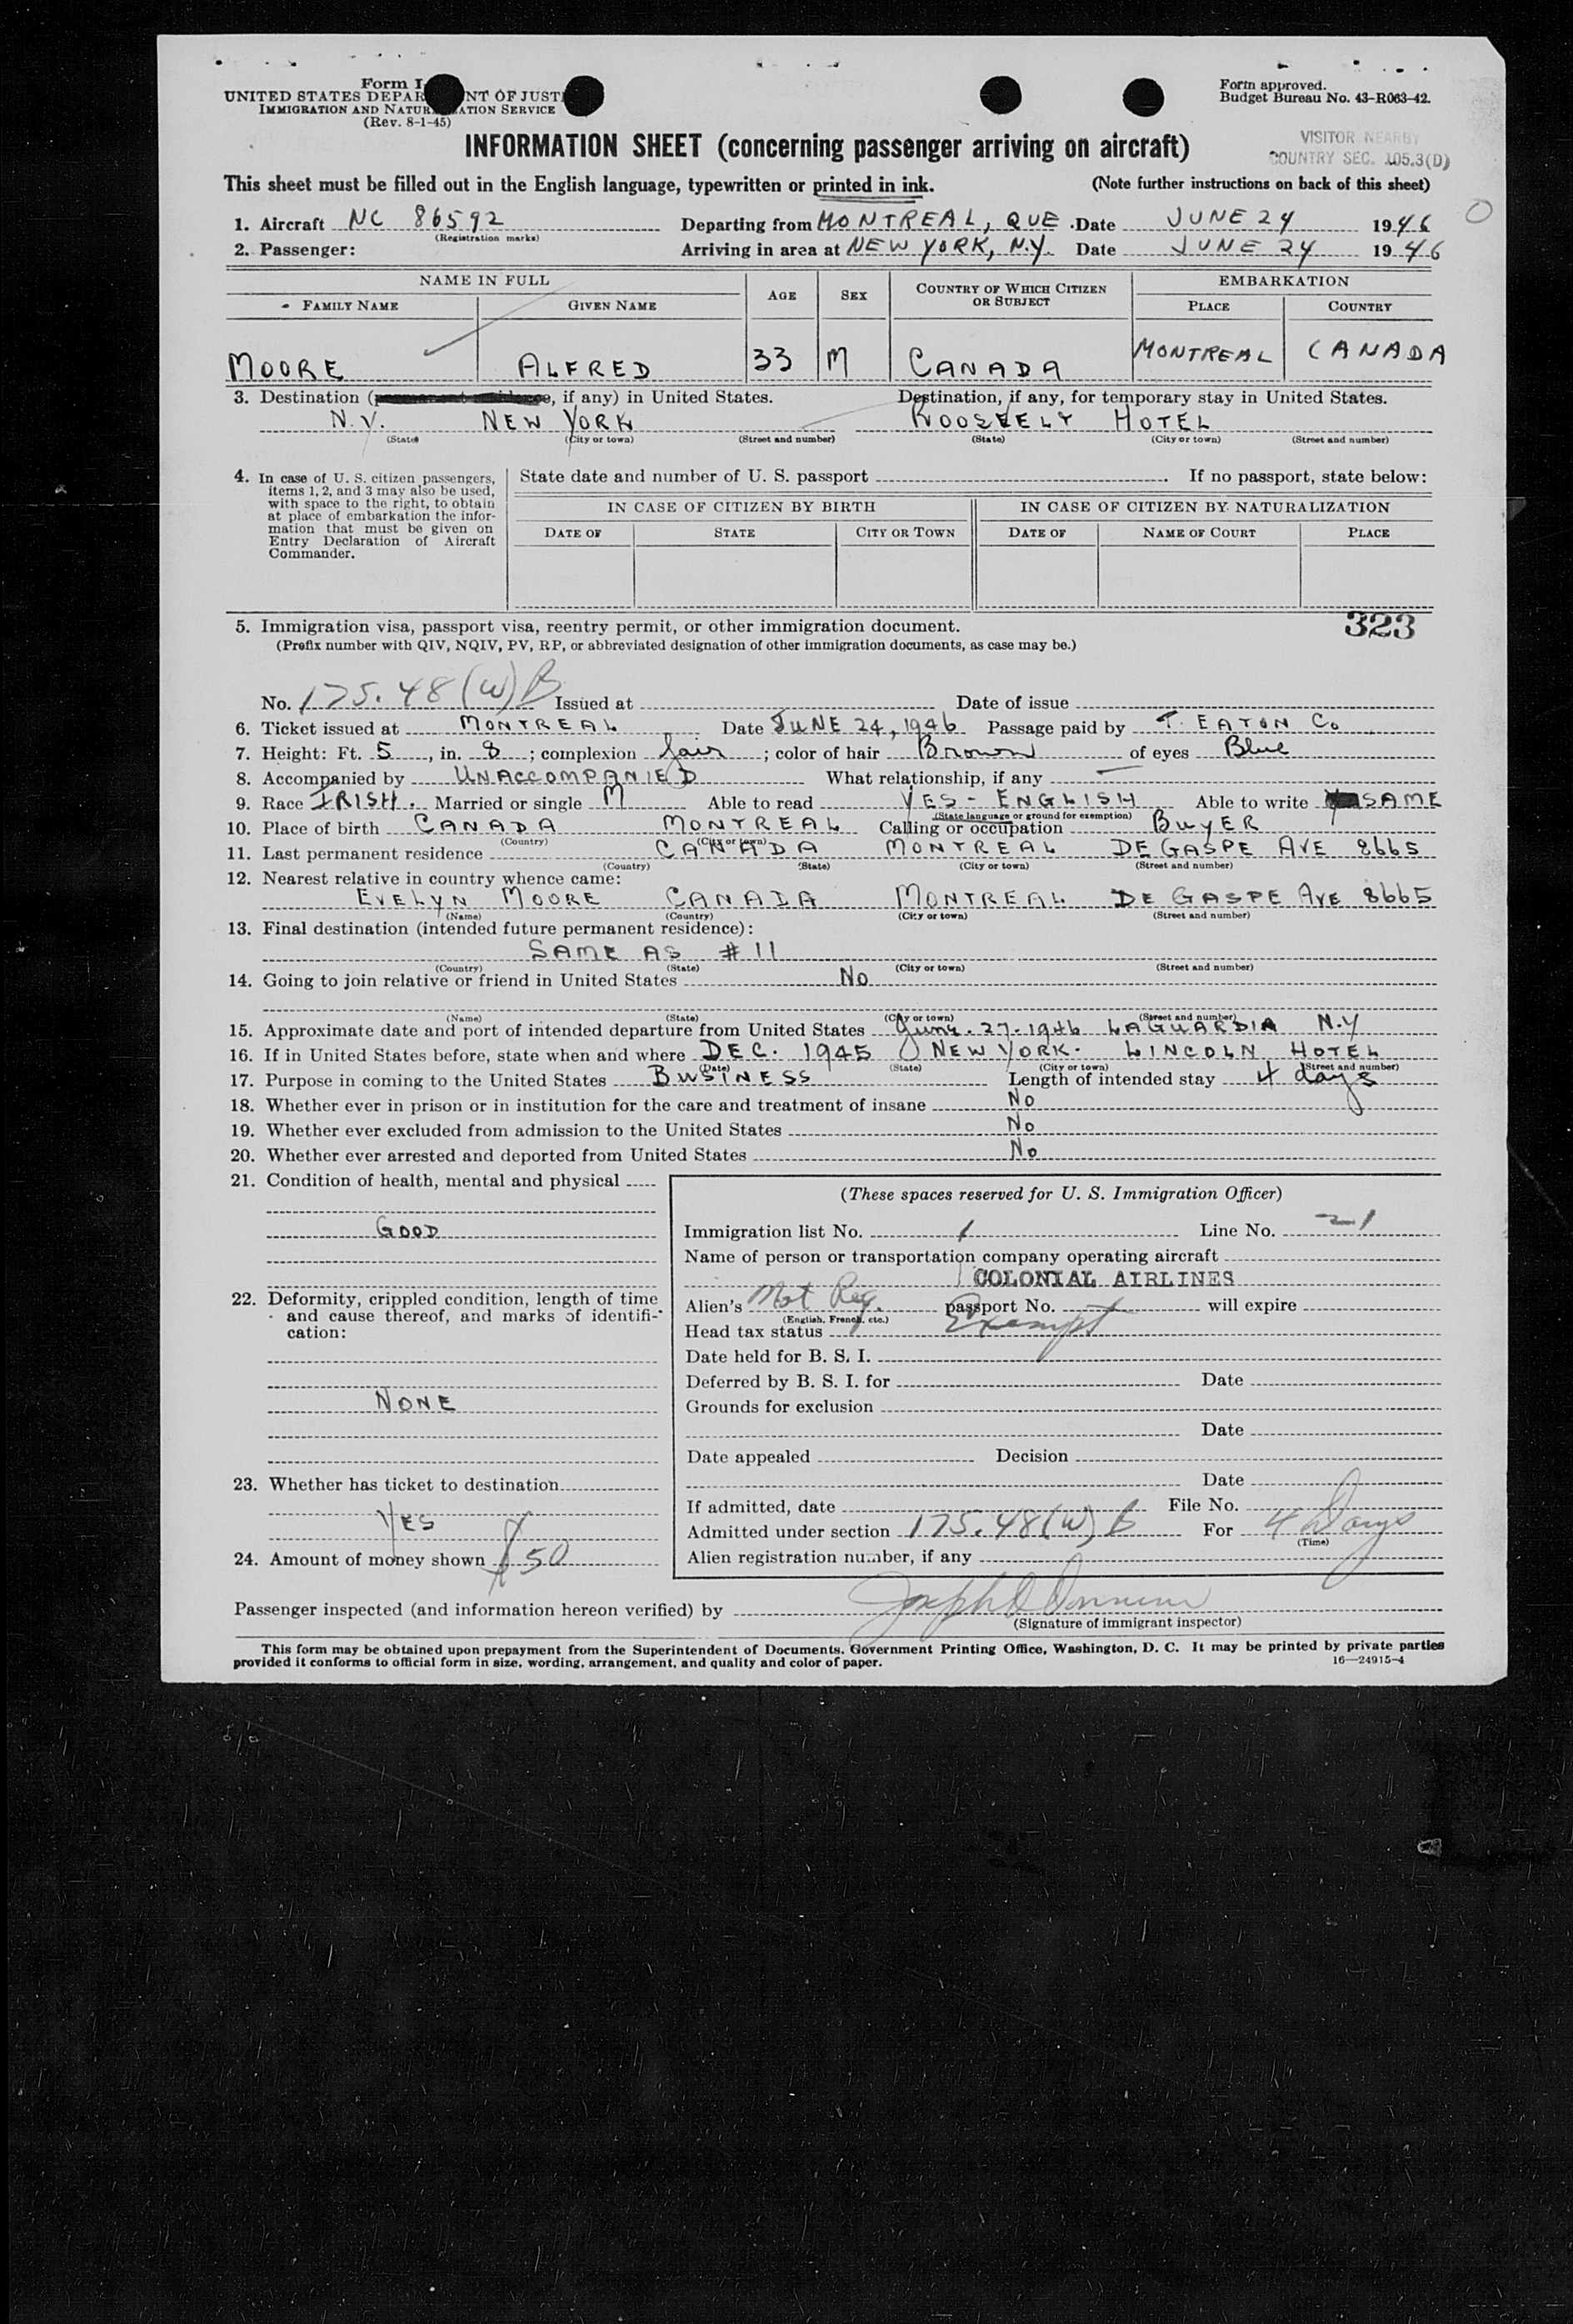 Form I
UNITED STATES DEPAR NT OF JUSTI
IMMIGRATION AND NATUR ATION SERVICE
(Rev. 8-1-45)
Form approved.
Budget Bureau No. 43-R063-42.
INFORMATION SHEET (concerning passenger arriving on aircraft)
VISITOR NEARBY
COUNTRY SEC. 105.3(D)
This sheet must be filled out in the English language, typewritten or printed in ink. (Note further instructions on back of this sheet)
1. Aircraft NC 86592 Departing from MONTREAL, QUE Date JUNE 24 1946
(Registration marks)
2. Passenger: Arriving in area at NEW YORK, N.Y. Date JUNE 24 1946
NAME IN FULL AGE SEX COUNTRY OF WHICH CITIZEN OR SUBJECT EMBARKATION
FAMILY NAME GIVEN NAME PLACE COUNTRY
MOORE ALFRED 33 M CANADA MONTREAL CANADA
3. Destination ( , if any) in United States. Destination, if any, for temporary stay in United States.
N.Y. NEW YORK ROOSEVELT HOTEL
(State) (City or town) (Street and number) (State) (City or town) (Street and number)
4. In case of U. S. citizen passengers, items 1, 2, and 3 may also be used, with space to the right, to obtain at place of embarkation the information that must be given on Entry Declaration of Aircraft Commander.
State date and number of U. S. passport . If no passport, state below:
IN CASE OF CITIZEN BY BIRTH IN CASE OF CITIZEN BY NATURALIZATION
DATE OF STATE CITY OR TOWN DATE OF NAME OF COURT PLACE
323
5. Immigration visa, passport visa, reentry permit, or other immigration document.
(Prefix number with QIV, NQIV, PV, RP, or abbreviated designation of other immigration documents, as case may be.)
No. 175.48(W)B Issued at Date of issue
6. Ticket issued at MONTREAL Date JUNE 24, 1946 Passage paid by T. EATON Co
7. Height: Ft. 5, in. 8; complexion fair; color of hair Brown of eyes Blue
8. Accompanied by UNACCOMPANIED What relationship, if any —
9. Race IRISH. Married or single M Able to read YES - ENGLISH Able to write SAME
(State language or ground for exemption)
10. Place of birth CANADA MONTREAL Calling or occupation BUYER
(Country) (City or town)
11. Last permanent residence CANADA MONTREAL DE GASPE AVE 8665
(Country) (State) (City or town) (Street and number)
12. Nearest relative in country whence came:
EVELYN MOORE CANADA MONTREAL DE GASPE AVE 8665
(Name) (Country) (City or town) (Street and number)
13. Final destination (intended future permanent residence):
SAME AS # 11
(Country) (State) (City or town) (Street and number)
14. Going to join relative or friend in United States No
(Name) (State) (City or town) (Street and number)
15. Approximate date and port of intended departure from United States June. 27. 1946 LAGUARDIA N.Y
16. If in United States before, state when and where DEC. 1945 NEW YORK. LINCOLN HOTEL
(Date) (State) (City or town) (Street and number)
17. Purpose in coming to the United States BUSINESS Length of intended stay 4 days
18. Whether ever in prison or in institution for the care and treatment of insane No
19. Whether ever excluded from admission to the United States No
20. Whether ever arrested and deported from United States No
21. Condition of health, mental and physical
GOOD
22. Deformity, crippled condition, length of time and cause thereof, and marks of identification:
NONE
23. Whether has ticket to destination
YES
24. Amount of money shown $50
(These spaces reserved for U. S. Immigration Officer)
Immigration list No. 1 Line No. 21
Name of person or transportation company operating aircraft
COLONIAL AIRLINES
Alien's Not Req. passport No. will expire
(English, French, etc.)
Head tax status Exempt
Date held for B. S. I.
Deferred by B. S. I. for Date
Grounds for exclusion
Date
Date appealed Decision
Date
If admitted, date File No.
Admitted under section 175.48(W)B For 4 Days
(Time)
Alien registration number, if any
Passenger inspected (and information hereon verified) by
(Signature of immigrant inspector)
This form may be obtained upon prepayment from the Superintendent of Documents, Government Printing Office, Washington, D. C. It may be printed by private parties
provided it conforms to official form in size, wording, arrangement, and quality and color of paper. 16—24915-4